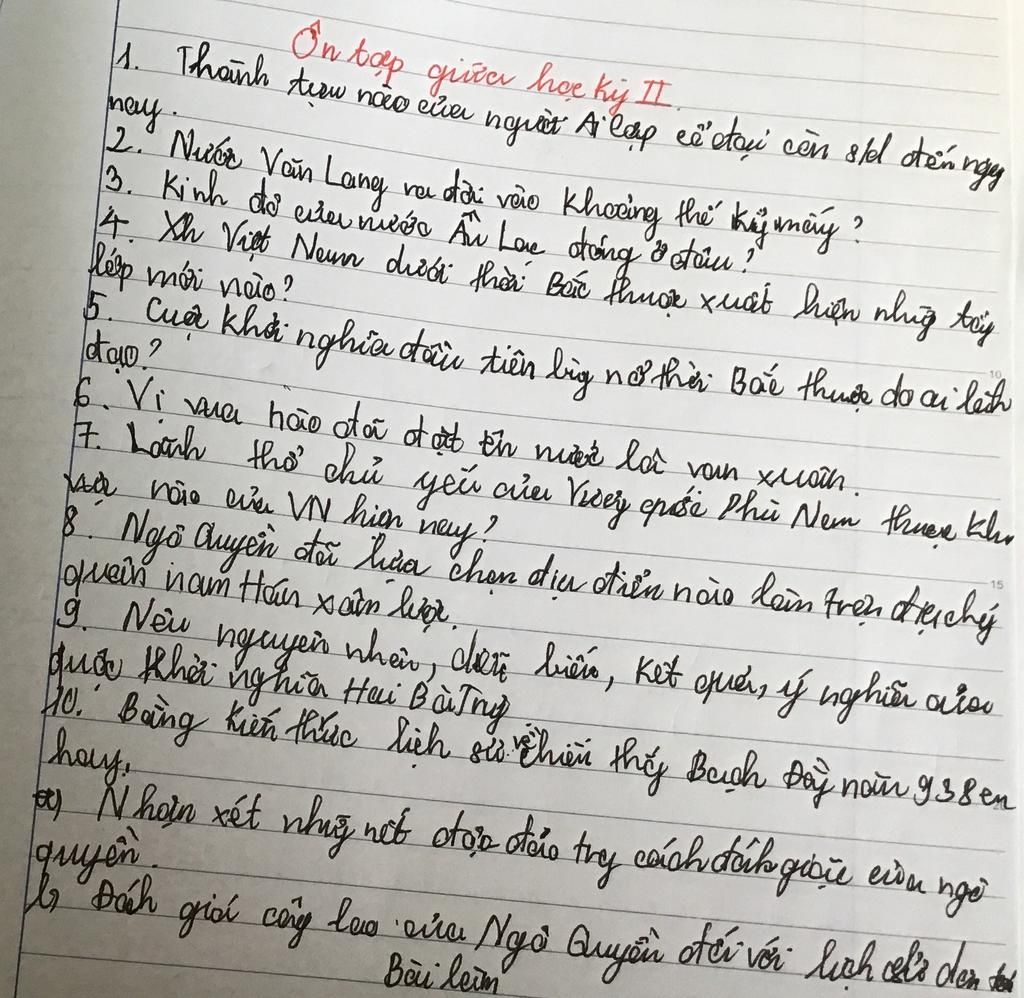 Ôn tập giữa học kỳ II.
1. Thành tựu nào của người Ai Cập cổ đại còn s/d đến ngày
nay.
2. Nước Văn Lang ra đời vào khoảng thế kỷ mấy?
3. Kinh đô của nước Âu Lạc đóng ở đâu?
4. Xh Việt Nam dưới thời Bắc thuộc xuất hiện nhữg tầg
lớp mới nào?
5. Cuộc khởi nghĩa đầu tiên bùg nổ thời Bắc thuộc do ai lãnh
đạo?
6. Vị vua nào đã đặt tên nước là vạn xuân.
7. Lãnh thổ chủ yếu của Vươg quốc Phù Nam thuộc khu
vực nào của VN hiện nay?
8. Ngô Quyền đã lựa chọn địa điểm nào làm trận địa chốg
quân nam Hán xâm lược.
9. Nêu nguyên nhân, diễn biến, kết quả, ý nghĩa của
cuộc khởi nghĩa Hai Bà Trưg
10. Bằng kiến thức lịch sử về chiến thắg Bạch Đằg năm 938 em
hãy.
a) Nhận xét nhữg nét độc đáo trg cách đánh giặc của ngô
quyền.
b, Đánh giá côg lao của Ngô Quyền đối với lịch sử dân
Bài làm